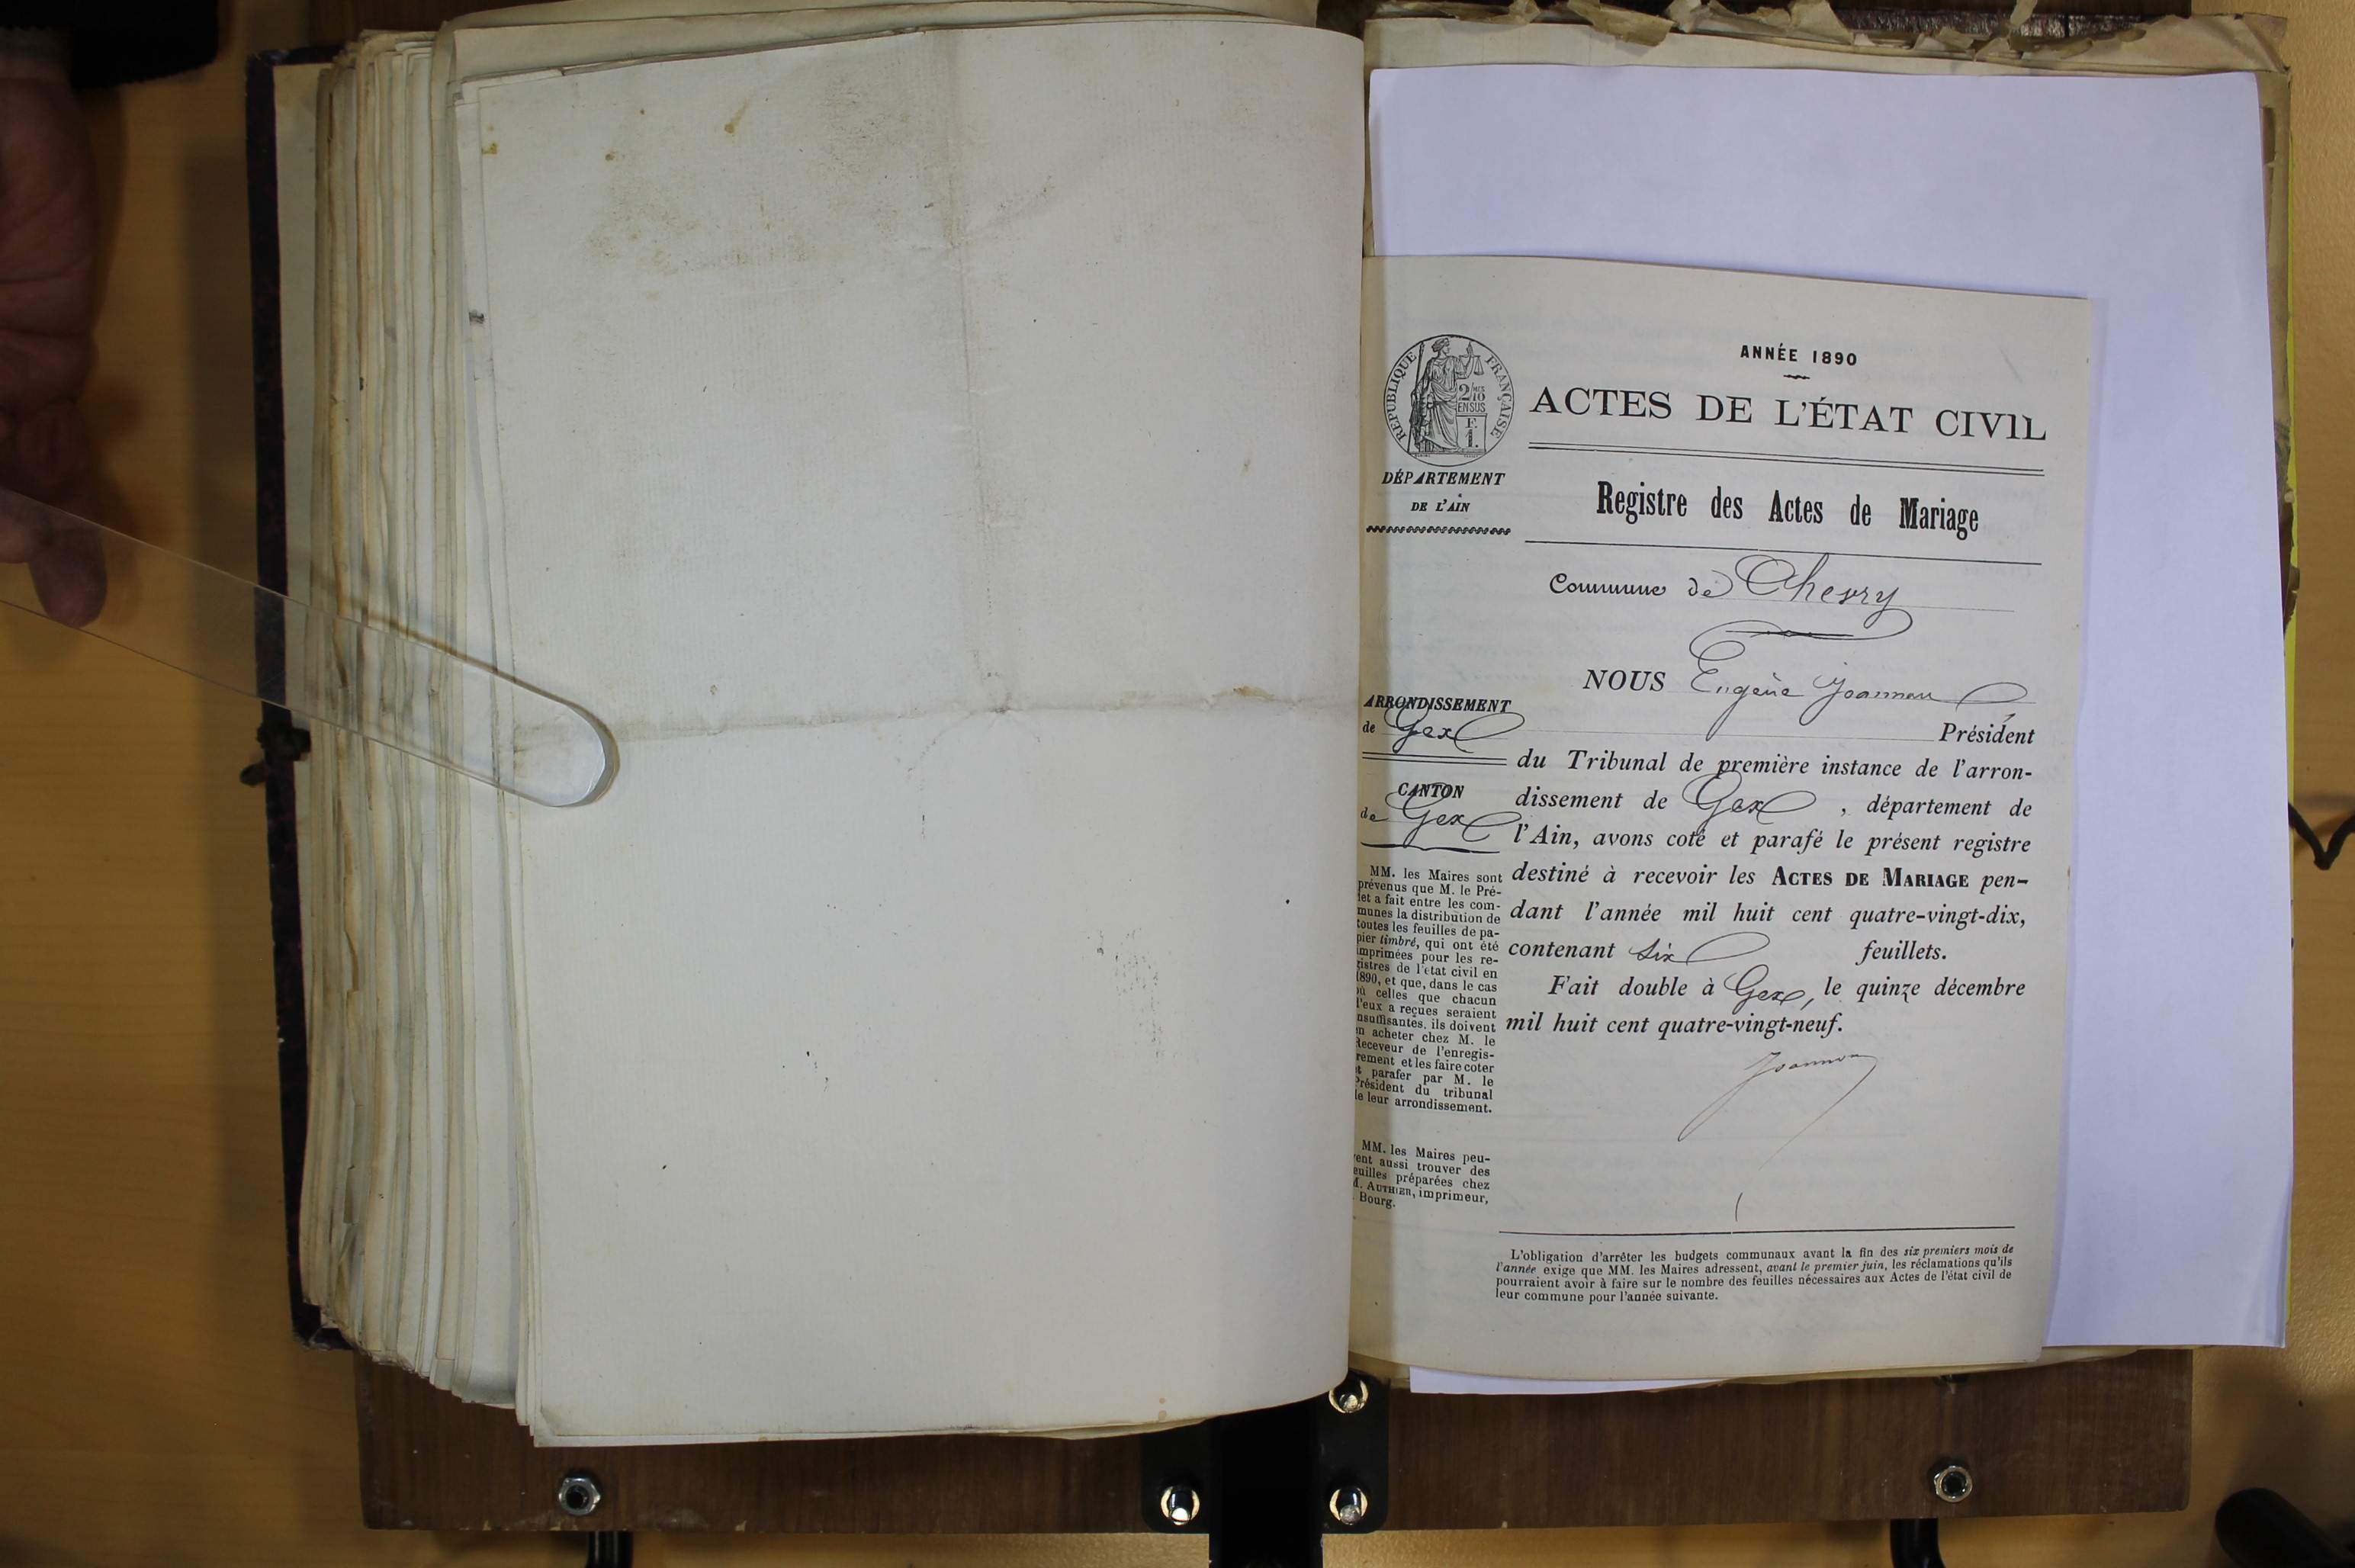 ANNÉE 1890
RÉPUBLIQUE FRANÇAISE
2/10 MES
EN SUS
F.
1.
ACTES DE L'ÉTAT CIVIL
DÉPARTEMENT
DE L'AIN
Registre des Actes de Mariage
Commune de Chevry
NOUS Eugène
ARRONDISSEMENT
de Gex
CANTON
de Gex
Président
du Tribunal de première instance de l'arron-
dissement de Gex, département de
l'Ain, avons coté et parafé le présent registre
destiné à recevoir les ACTES DE MARIAGE pen-
dant l'année mil huit cent quatre-vingt-dix,
contenant six feuillets.
Fait double à Gex, le quinze décembre
mil huit cent quatre-vingt-neuf.
MM. les Maires sont
prévenus que M. le Pré-
fet a fait entre les com-
munes la distribution de
toutes les feuilles de pa-
pier timbré, qui ont été
imprimées pour les re-
gistres de l'état civil en
1890, et que, dans le cas
où celles que chacun
d'eux a reçues seraient
insuffisantes, ils doivent
en acheter chez M. le
Receveur de l'enregis-
rement et les faire coter
et parafer par M. le
Président du tribunal
de leur arrondissement.
MM. les Maires peu-
vent aussi trouver des
feuilles préparées chez
M. AUTHIER, imprimeur,
Bourg.
L'obligation d'arrêter les budgets communaux avant la fin des six premiers mois de
l'année exige que MM. les Maires adressent, avant le premier juin, les réclamations qu'ils
pourraient avoir à faire sur le nombre des feuilles nécessaires aux Actes de l'état civil de
leur commune pour l'année suivante.